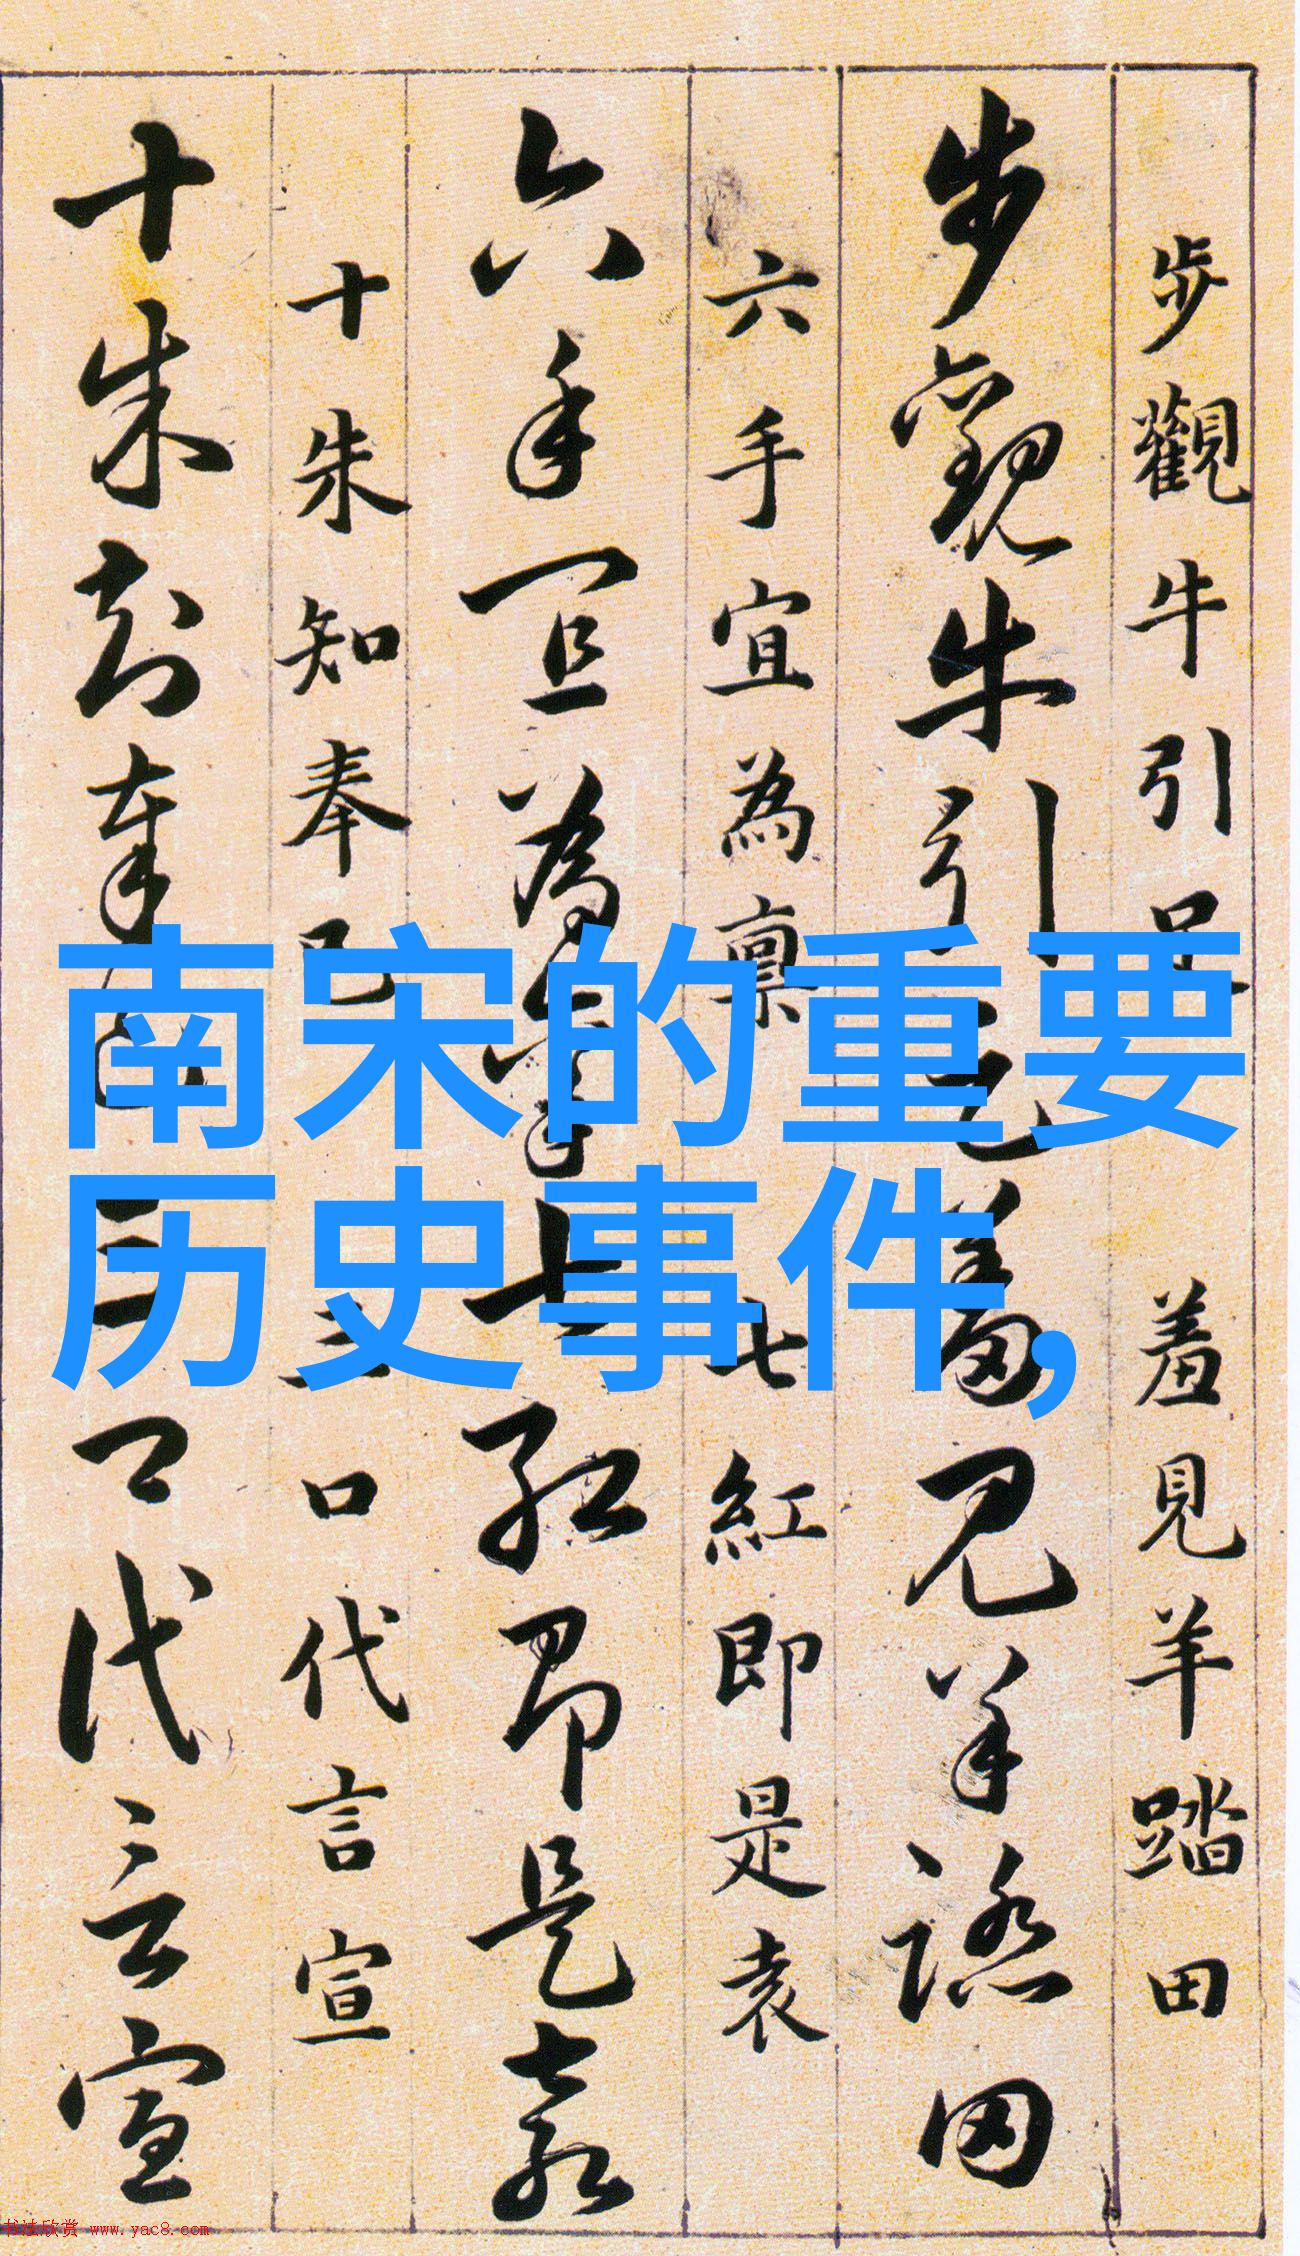 步觀牛引足羞見羊踏田
步觀牛引足羞見羊踏田
六手宜為禀七紅即是袁
六手宜為禀七紅即是袁
十朱知奉己三口代言宣
十朱知奉己三口代言宣
南宋的重要
历史事件,
书法欣赏 www.yac8.com